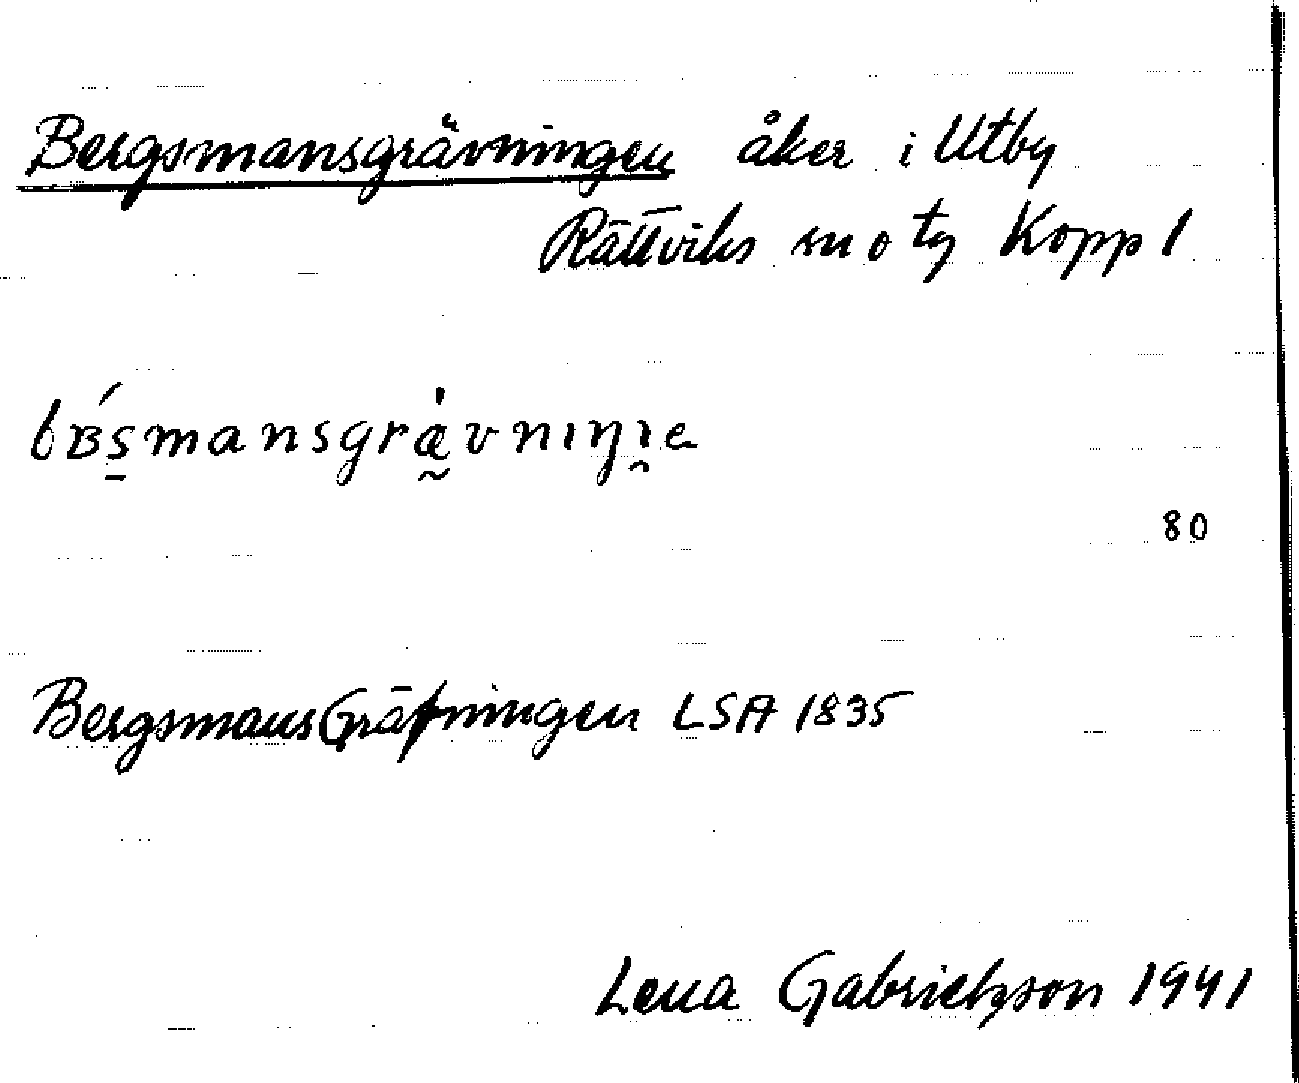 Bergsmansgrävningen åker i Utby
Rättviks sn o tg Kopp l
bʙ́s̠mansgrä̰̀vnɪŋ̠ɪ̯e
80
BergsmansGräfningen LSA 1835
Lena Gabrielsson 1941